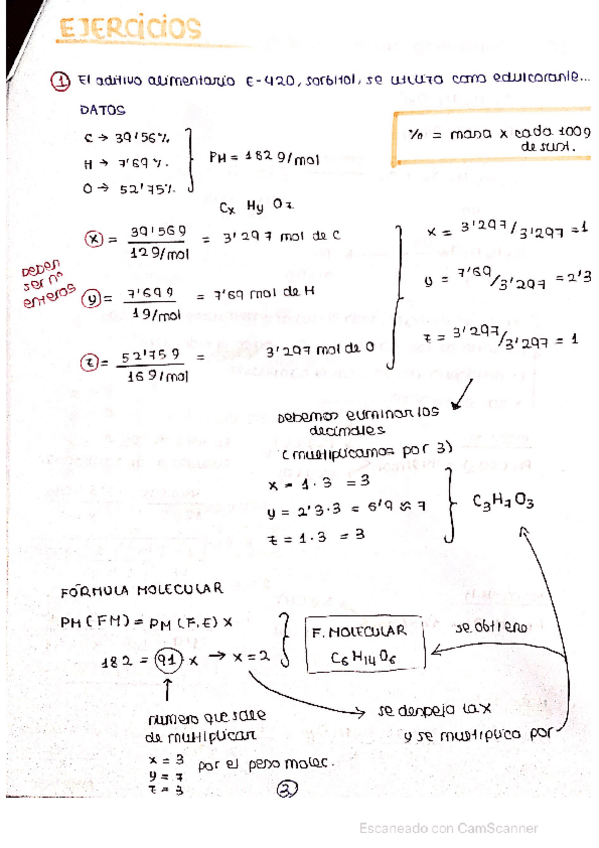 EJERCICIOS
① El aditivo alimentario E-420, sorbitol, se utiliza como edulcorante...
DATOS
C → 39'56%
H → 7'69%.
O → 52'75%.
PM = 182 g/mol
% = masa x cada 100g
de sust.
Cx Hy Oz
x = 39'56g / 12g/mol = 3'297 mol de C
y = 7'69g / 1g/mol = 7'69 mol de H
z = 52'75g / 16g/mol = 3'297 mol de O
Deben
ser nº
enteros
x = 3'297/3'297 = 1
y = 7'69/3'297 = 2'3
z = 3'297/3'297 = 1
Debemos eliminar los
decimales
(multiplicamos por 3)
x = 1·3 = 3
y = 2'3·3 = 6'9 ≈ 7
z = 1·3 = 3
C3H7O3
FÓRMULA MOLECULAR
PM (FM) = PM (F.E) x
182 = 91 x → x = 2
F. MOLECULAR
C6H14O6
se obtiene
número que sale
de multiplicar
x = 3
y = 7
z = 3
por el peso molec.
se despeja la x
y se multiplica por
2
Escaneado con CamScanner